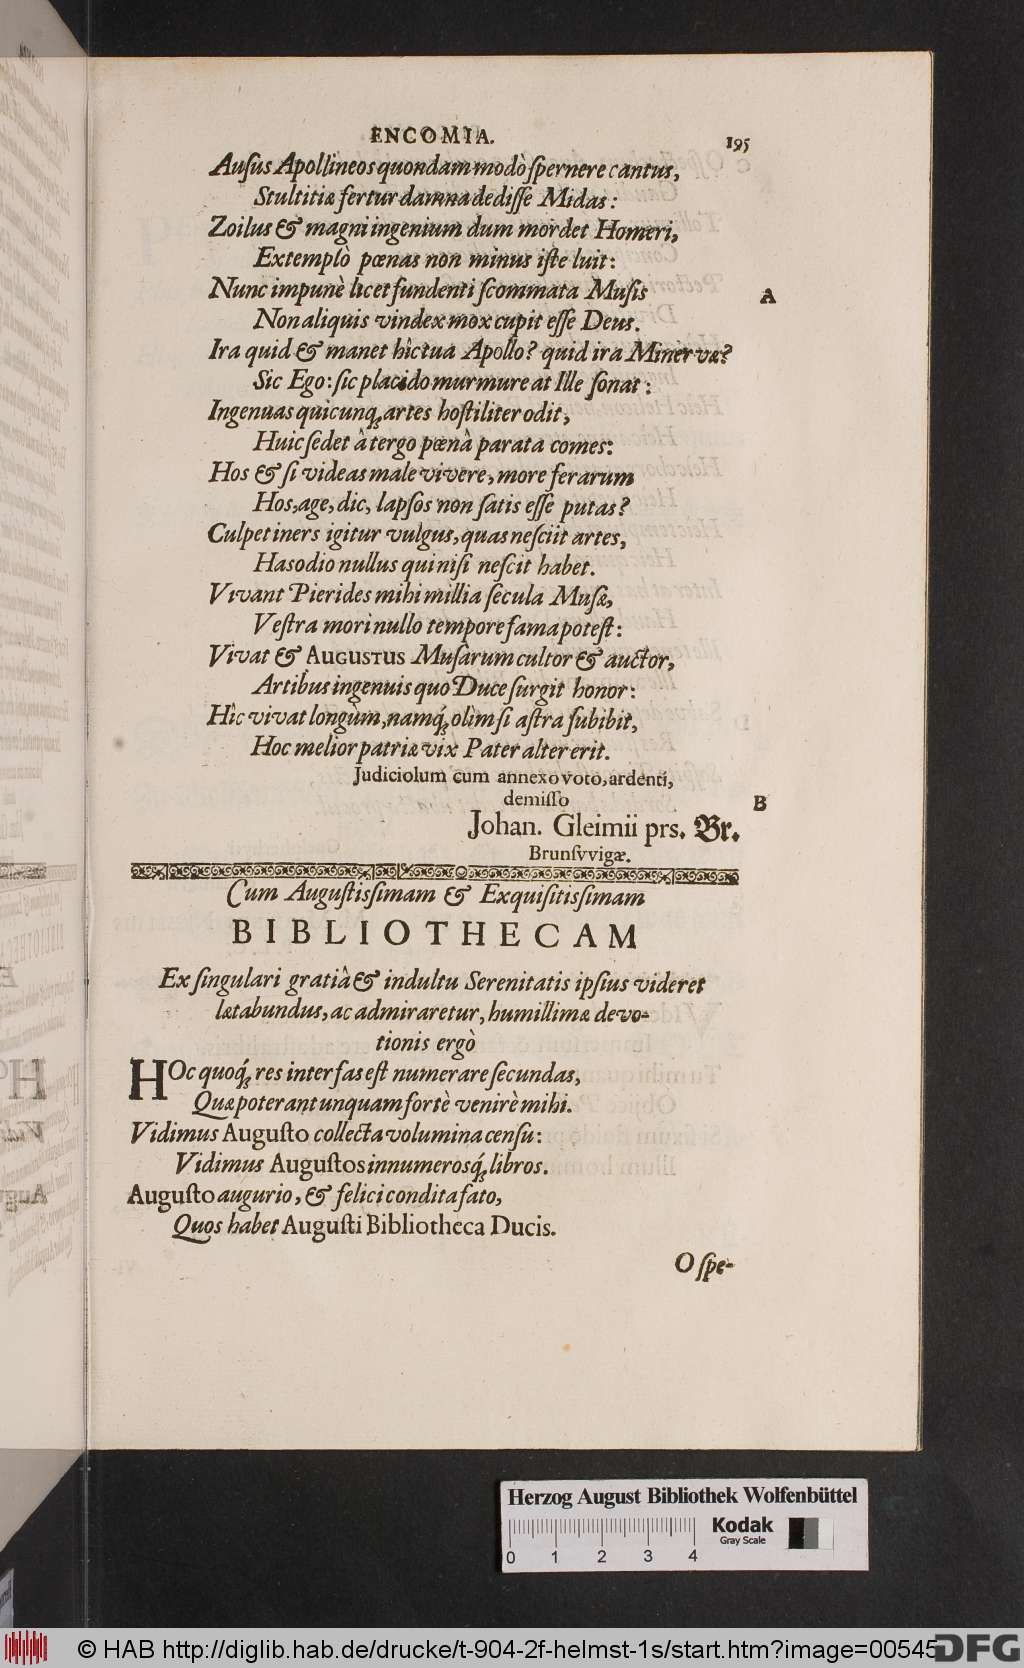 ENCOMIA. 195
Ausus Apollineos quondam modò spernere cantus,
Stultitiæ fertur damna dedisse Midas:
Zoilus & magni ingenium dum mordet Homeri,
Extemplò pœnas non minus iste luit:
Nunc impunè licet fundenti scommata Musis
A
Non aliquis vindex mox cupit esse Deus.
Ira quid & manet hìc tua Apollo? quid ira Minervæ?
Sic Ego: sic placido murmure at Ille sonat:
Ingenuas quicunq; artes hostiliter odit,
Huic sedet à tergo pœnâ parata comes:
Hos & si videas male vivere, more ferarum
Hos, age, dic, lapsos non satis esse putas?
Culpet iners igitur vulgus, quas nesciit artes,
Has odio nullus qui nisi nescit habet.
Vivant Pierides mihi millia secula Musæ,
Vestra mori nullo tempore fama potest:
Vivat & AUGUSTUS Musarum cultor & auctor,
Artibus ingenuis quo Duce surgit honor:
Hîc vivat longùm, namq́; olim si astra subibit,
Hoc melior patriæ vix Pater alter erit.
Judiciolum cum annexo voto, ardenti,
demisso
B
Johan. Gleimii prs. Br.
Brunsvvigæ.
Cum Augustissimam & Exquisitissimam
BIBLIOTHECAM
Ex singulari gratiâ & indultu Serenitatis ipsius videret
lætabundus, ac admiraretur, humillimæ devo-
tionis ergò
HOc quoq́; res inter fas est numerare secundas,
Quæ poterant unquam fortè venirè mihi.
Vidimus Augusto collecta volumina censu:
Vidimus Augustos innumerosq́; libros.
Augusto augurio, & felici condita fato,
Quos habet Augusti Bibliotheca Ducis.
O spe-
Herzog August Bibliothek Wolfenbüttel
0 1 2 3 4
Kodak
Gray Scale
© HAB http://diglib.hab.de/drucke/t-904-2f-helmst-1s/start.htm?image=00545
DFG